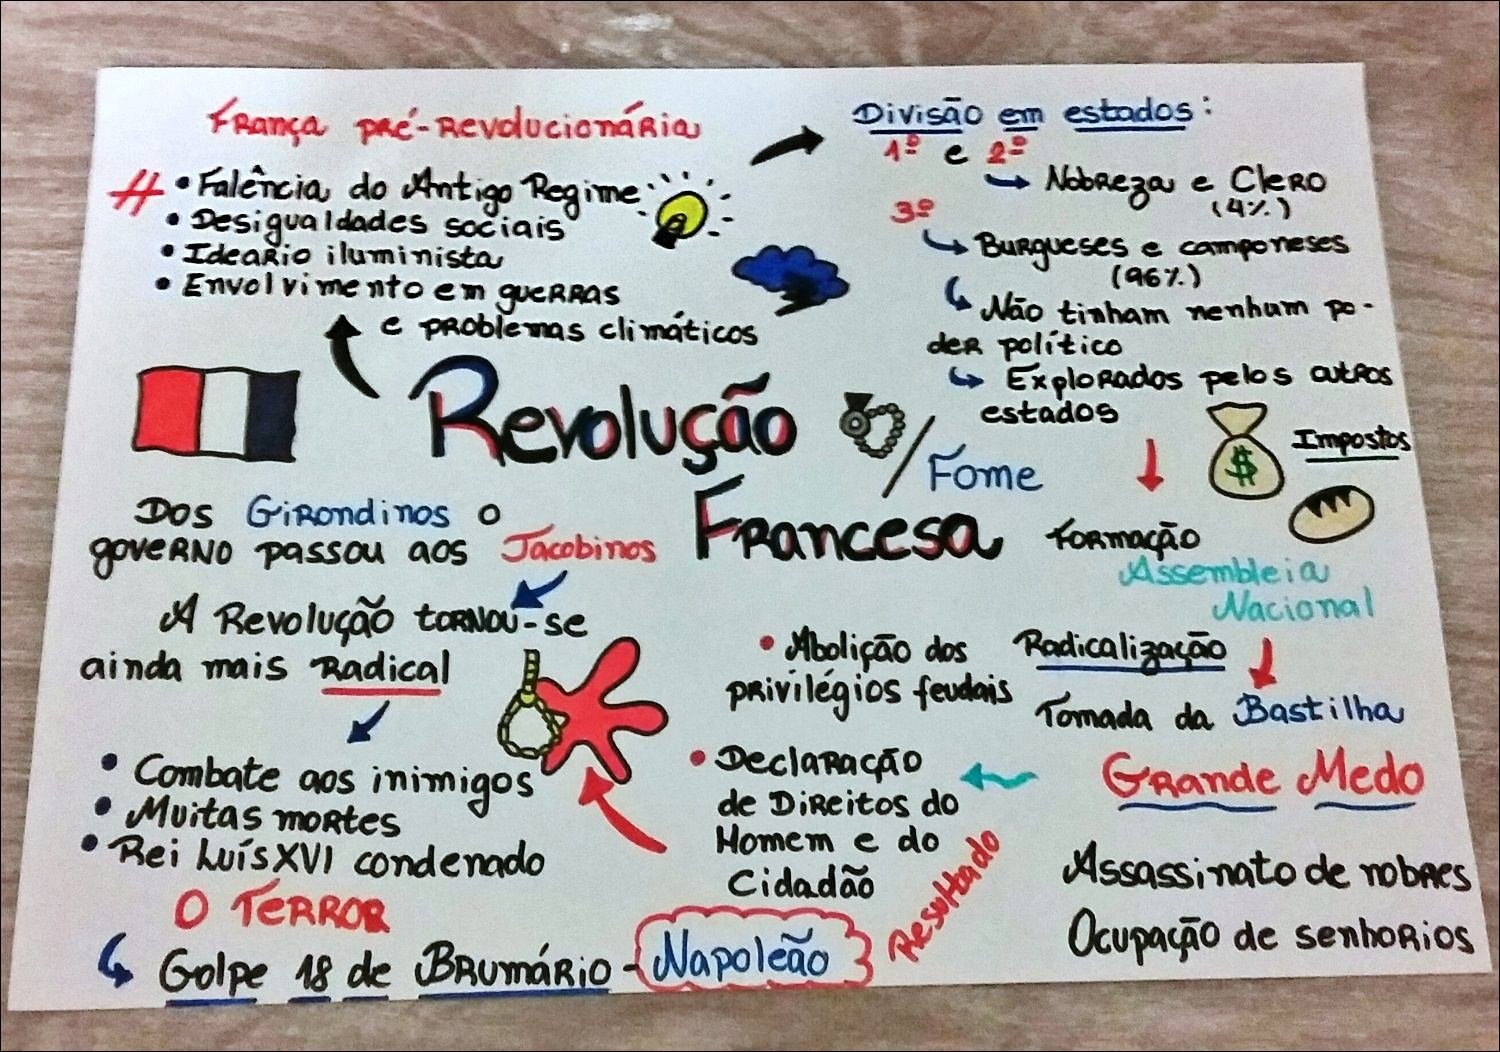 França pré-revolucionária
# • Falência do Antigo Regime
• Desigualdades sociais
• Ideário iluminista
• Envolvimento em guerras
e problemas climáticos
Divisão em estados:
1º e 2º
Nobreza e Clero
(4%)
3º
Burgueses e camponeses
(96%)
Não tinham nenhum po-
der político
Explorados pelos outros
estados
Impostos
$
Revolução
Francesa
/ Fome
Formação
Assembleia
Nacional
Radicalização
Tomada da Bastilha
Grande Medo
Assassinato de nobres
Ocupação de senhorios
Resultado
• Abolição dos
privilégios feudais
• Declaração
de Direitos do
Homem e do
Cidadão
Dos Girondinos o
governo passou aos Jacobinos
A Revolução tornou-se
ainda mais Radical
• Combate aos inimigos
• Muitas mortes
• Rei Luís XVI condenado
O Terror
Golpe 18 de Brumário - Napoleão